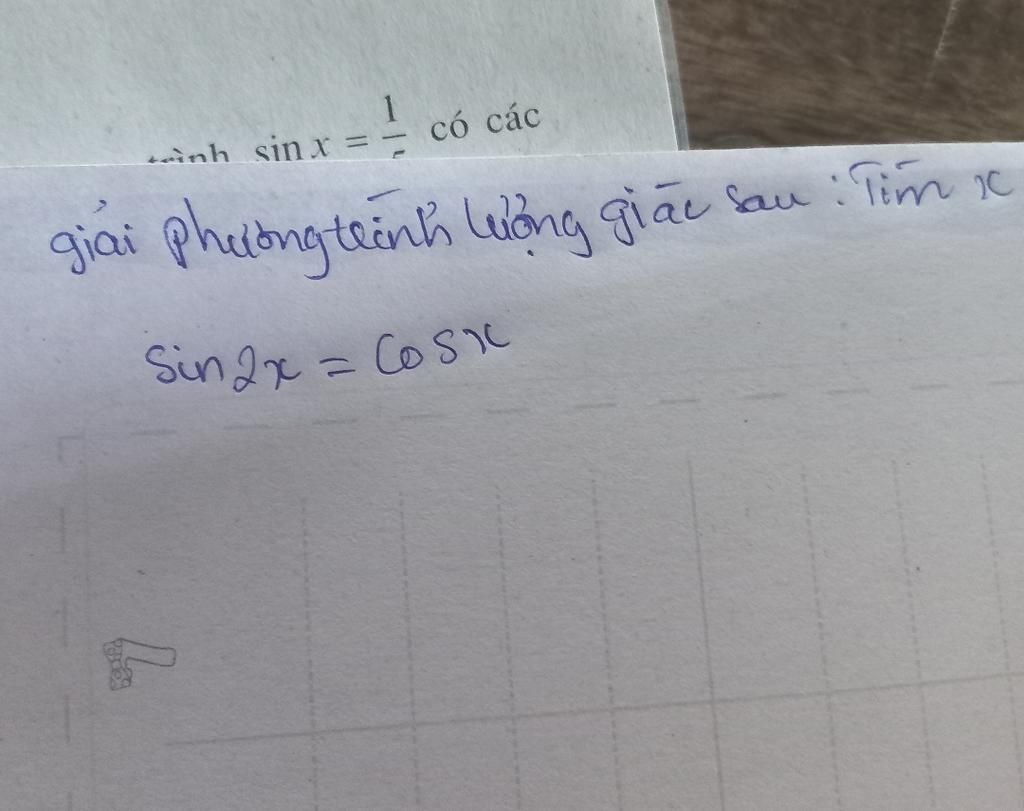 trình sin x = 1/5 có các
giải phương trình lượng giác sau : Tìm x
sin2x = cosx